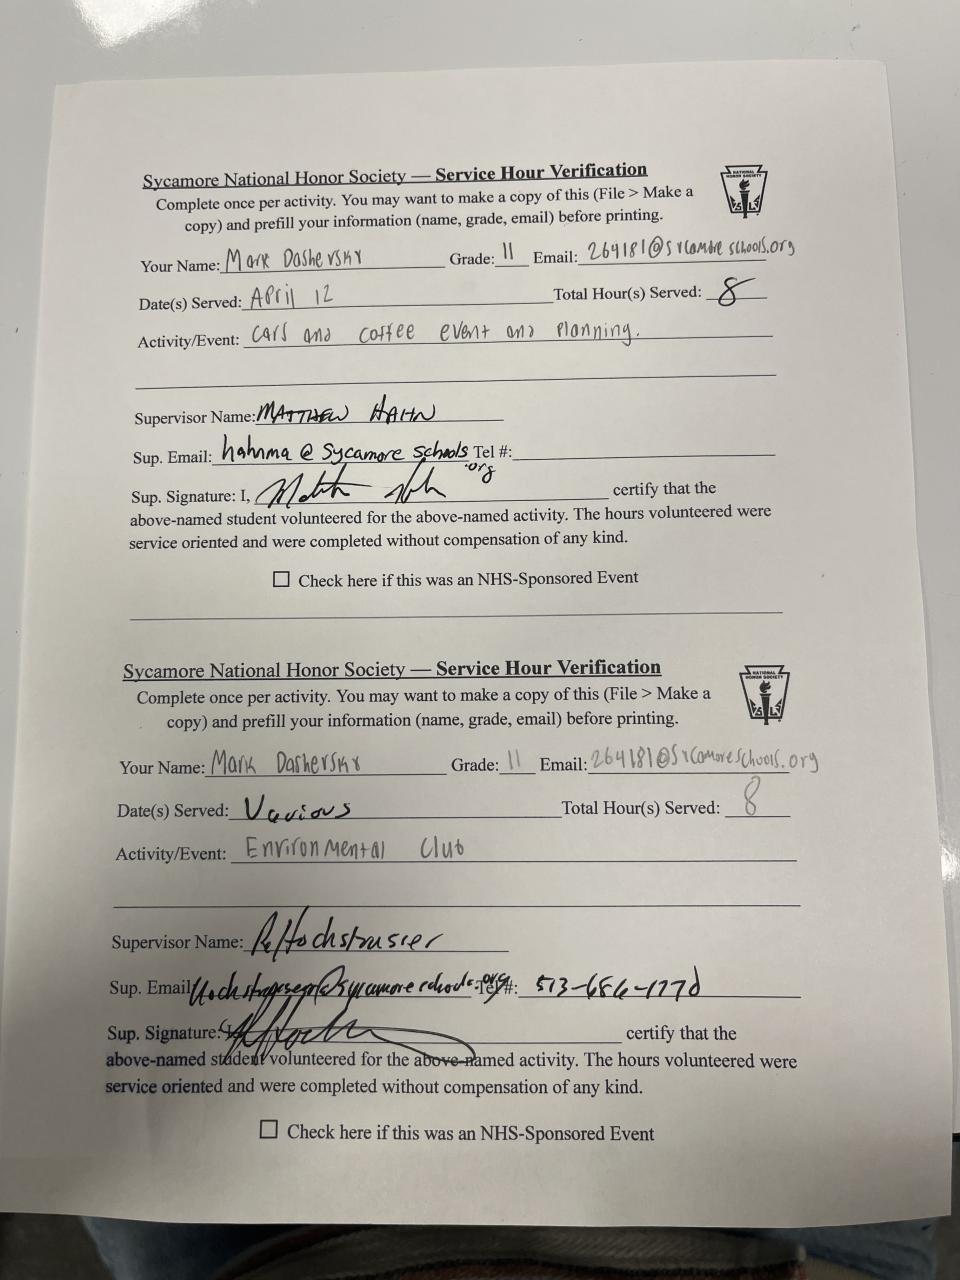 Sycamore National Honor Society — Service Hour Verification
NATIONAL HONOR SOCIETY
Complete once per activity. You may want to make a copy of this (File > Make a
copy) and prefill your information (name, grade, email) before printing.
Your Name: Mark Dashevsky Grade: 11 Email: 264181@sycamoreschools.org
Date(s) Served: April 12 Total Hour(s) Served: 8
Activity/Event: Cars and coffee event and planning.
Supervisor Name: MATTHEW HAHN
Sup. Email: hahnma@sycamoreschools.org Tel #:
Sup. Signature: I, certify that the
above-named student volunteered for the above-named activity. The hours volunteered were
service oriented and were completed without compensation of any kind.
☐ Check here if this was an NHS-Sponsored Event
Sycamore National Honor Society — Service Hour Verification
NATIONAL HONOR SOCIETY
Complete once per activity. You may want to make a copy of this (File > Make a
copy) and prefill your information (name, grade, email) before printing.
Your Name: Mark Dashevsky Grade: 11 Email: 264181@sycamoreschools.org
Date(s) Served: Various Total Hour(s) Served: 8
Activity/Event: Environmental Club
Supervisor Name:
Sup. Email: Tel #: 513-686-1770
Sup. Signature: I, certify that the
above-named student volunteered for the above-named activity. The hours volunteered were
service oriented and were completed without compensation of any kind.
☐ Check here if this was an NHS-Sponsored Event